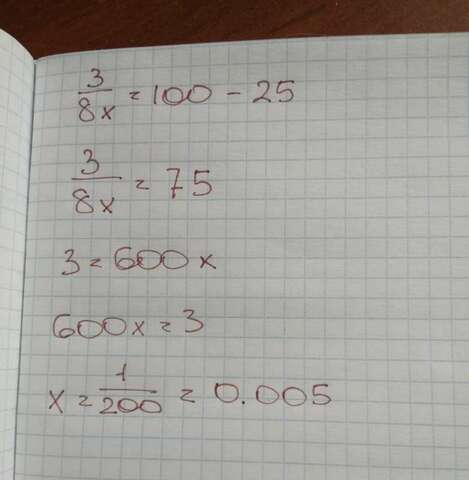 3/8x = 100 - 25
3/8x = 75
3 = 600x
600x = 3
x = 1/200 = 0.005